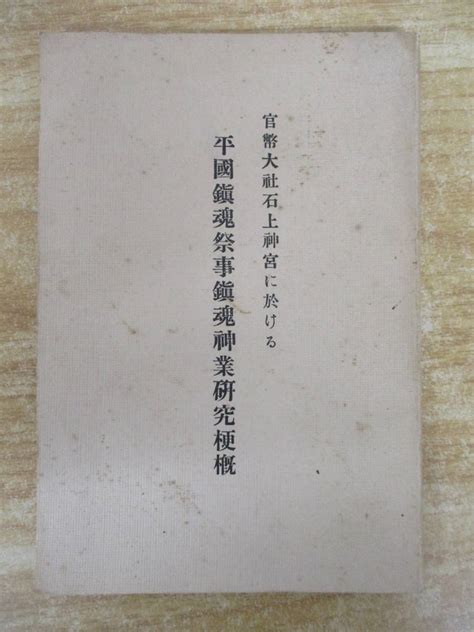 官幣大社石上神宮に於ける
平國鎭魂祭事鎭魂神業硏究梗槪